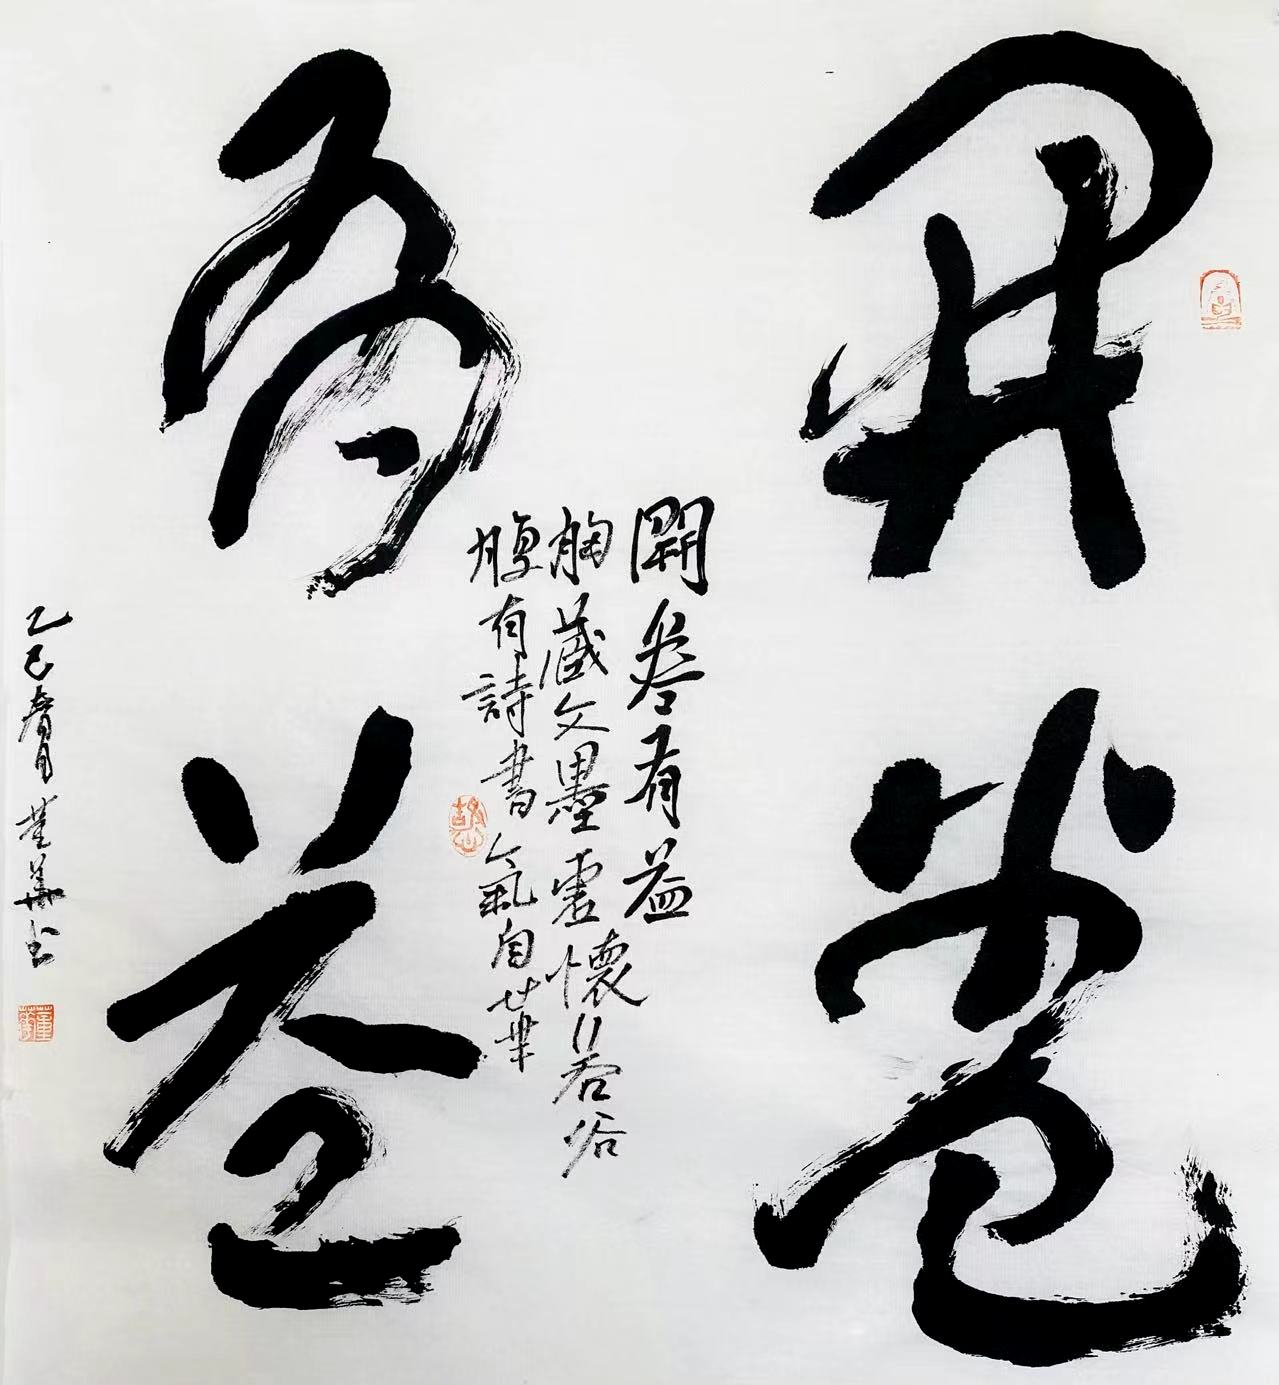 開卷
有益
開卷有益
胸藏文墨虛懷若谷
腹有詩書氣自華
乙巳春月董華书